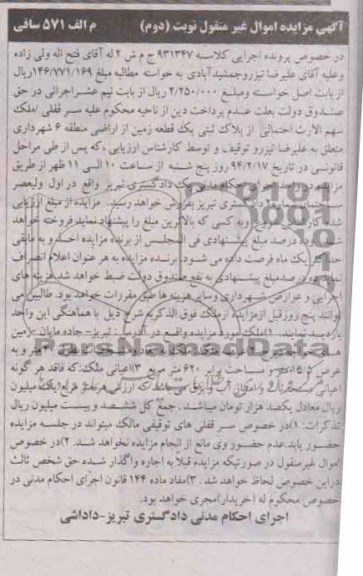 آگهی مزایده اموال غیر منقول نوبت (دوم) م الف ۵۷۱ سافی
در خصوص پرونده اجرایی کلاسه ۹۳۱۳۴۷ ح م ش ۲ له آقای فتح اله ولی زاده
وعلیه آقای علیرضا تیزروجمشیدآبادی به خواسته مطالبه مبلغ ۱۴۶/۷۷۱/۱۶۹ ریال
از بابت اصل خواسته ومبلغ ۲/۲۵۰/۰۰۰ ریال از بابت نیم عشراجرائی در حق
صندوق دولت بعلت عدم پرداخت دین از ناحیه محکوم علیه سر قفلی /ملک
سهم الارث احتمالی از پلاک ثبتی یک قطعه زمین از اراضی منطقه ۶ شهرداری
متعلق به علیرضا تیزرو توقیف و توسط کارشناس ارزیابی ،که پس از طی مراحل
قانونی در تاریخ ۹۴/۲/۱۷ روز پنج شنبه از ساعت ۱۰ الی ۱۱ ظهر از طریق
مزایده در احکام مدنی دادگستری تبریز واقع در اول ولیعصر
دادگستری تبریز بفروش خواهد رسید. مزایده از مبلغ ارزیابی
شده کارشناسی شروع وبه کسی که بالاترین مبلغ را پیشنهاد نماید فروخته خواهد
شد. ده درصد مبلغ پیشنهادی فی المجلس از برنده مزایده اخذ و به مابقی
حداکثر یک ماه فرصت داده می شود. برنده مزایده به هر عنوان اعلام انصراف
نماید ده درصد مبلغ پیشنهادی به نفع صندوق دولت ضبط خواهد شد. هزینه های
اجرایی و عوارض شهرداری وسایر هزینه ها طبق مقررات خواهد بود. طالبین می
توانند پنج روز قبل از مزایده از ملک فوق الذکر به شرح ذیل با هماهنگی این واحد
بازدید نمایند. ۱)ملک مورد مزایده واقع در آدرس: تبریز- جاده مایان
ParsNamadData
عرض ۱۵/۵ متر مساحت برابر ۶۲۰ متر مربع ۳)اعیانی ملک:که فاقد هر گونه
اعیانی می باشد که ارزش هر متر مربع یک میلیون
ریال معادل یکصد هزار تومان میباشد. جمع کل ششصد و بیست میلیون ریال
تذکرات: ۱)در خصوص سر قفلی های توقیفی مالک میتواند در جلسه مزایده
حضور یابد.عدم حضور وی مانع از انجام مزایده نخواهد شد. ۲)در خصوص
اموال غیرمنقول در صورتیکه مزایده قبلاً به اجاره واگذار شده حق شخص ثالث
دراین خصوص لحاظ خواهد شد. ۳)مفاد ماده ۱۴۴ قانون اجرای احکام مدنی در
خصوص محکوم له (خریدار)مجری خواهد بود.
اجرای احکام مدنی دادگستری تبریز-داداشی